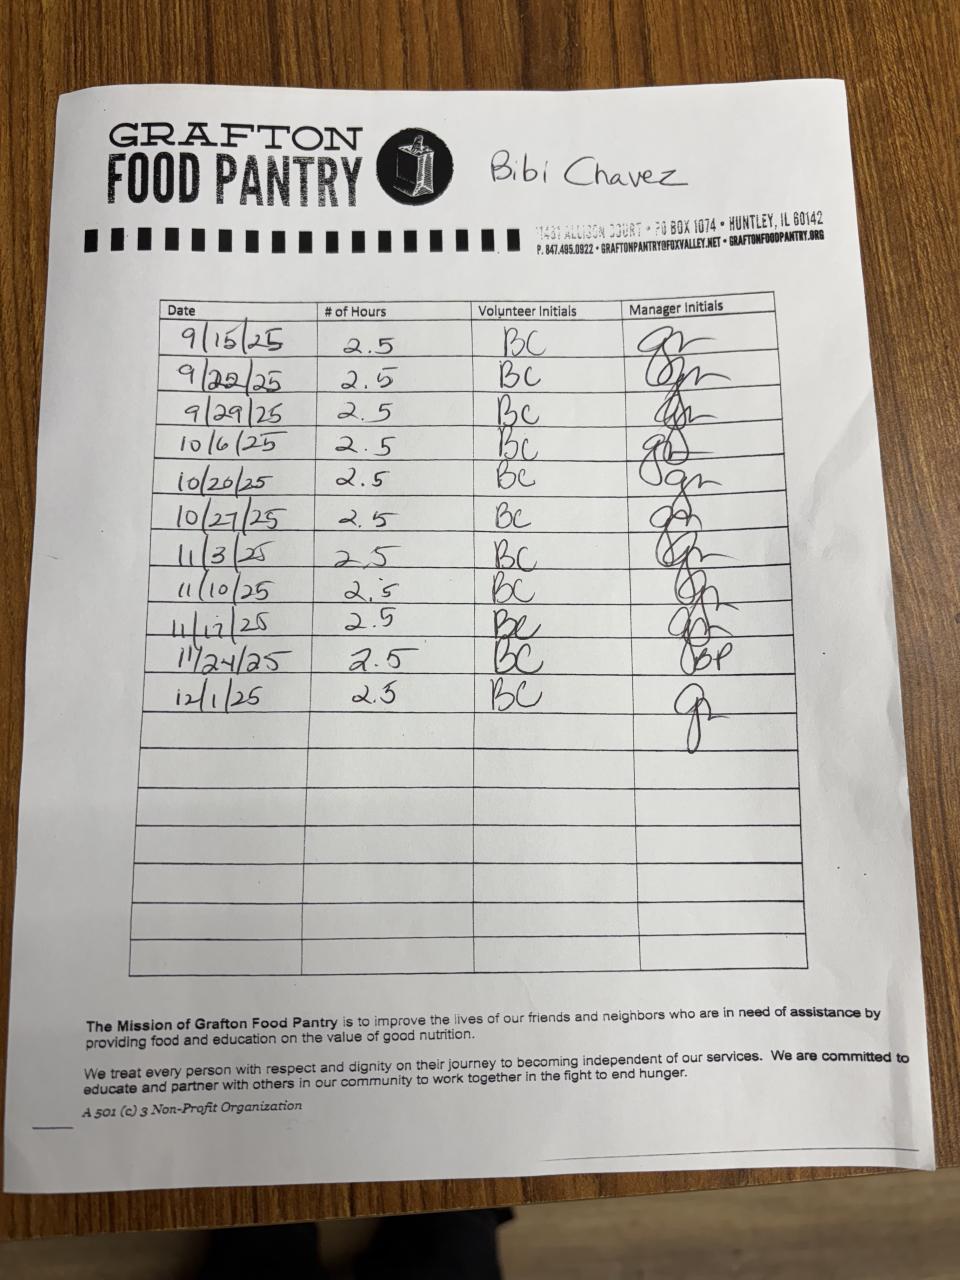 GRAFTON
FOOD PANTRY
Bibi Chavez
11481 ALLISON COURT • PO BOX 1074 • HUNTLEY, IL 60142
P. 847.495.0922 • GRAFTONPANTRY@FOXVALLEY.NET • GRAFTONFOODPANTRY.ORG
Date # of Hours Volunteer Initials Manager Initials
9/15/25 2.5 BC
9/22/25 2.5 BC
9/29/25 2.5 BC
10/6/25 2.5 BC
10/20/25 2.5 BC
10/27/25 2.5 BC
11/3/25 2.5 BC
11/10/25 2.5 BC
11/17/25 2.5 BC
11/24/25 2.5 BC BP
12/1/25 2.5 BC
The Mission of Grafton Food Pantry is to improve the lives of our friends and neighbors who are in need of assistance by
providing food and education on the value of good nutrition.
We treat every person with respect and dignity on their journey to becoming independent of our services. We are committed to
educate and partner with others in our community to work together in the fight to end hunger.
A 501 (c) 3 Non-Profit Organization